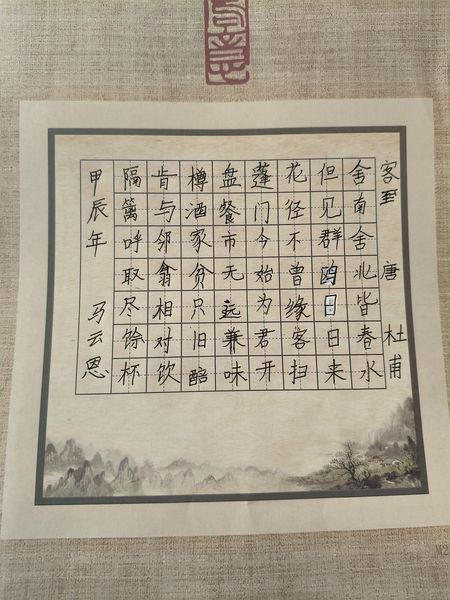 客至 唐 杜甫
舍南舍北皆春水
但见群鸥日日来
花径不曾缘客扫
蓬门今始为君开
盘餐市无远兼味
樽酒家贫只旧醅
肯与邻翁相对饮
隔篱呼取尽馀杯
甲辰年 马云恩